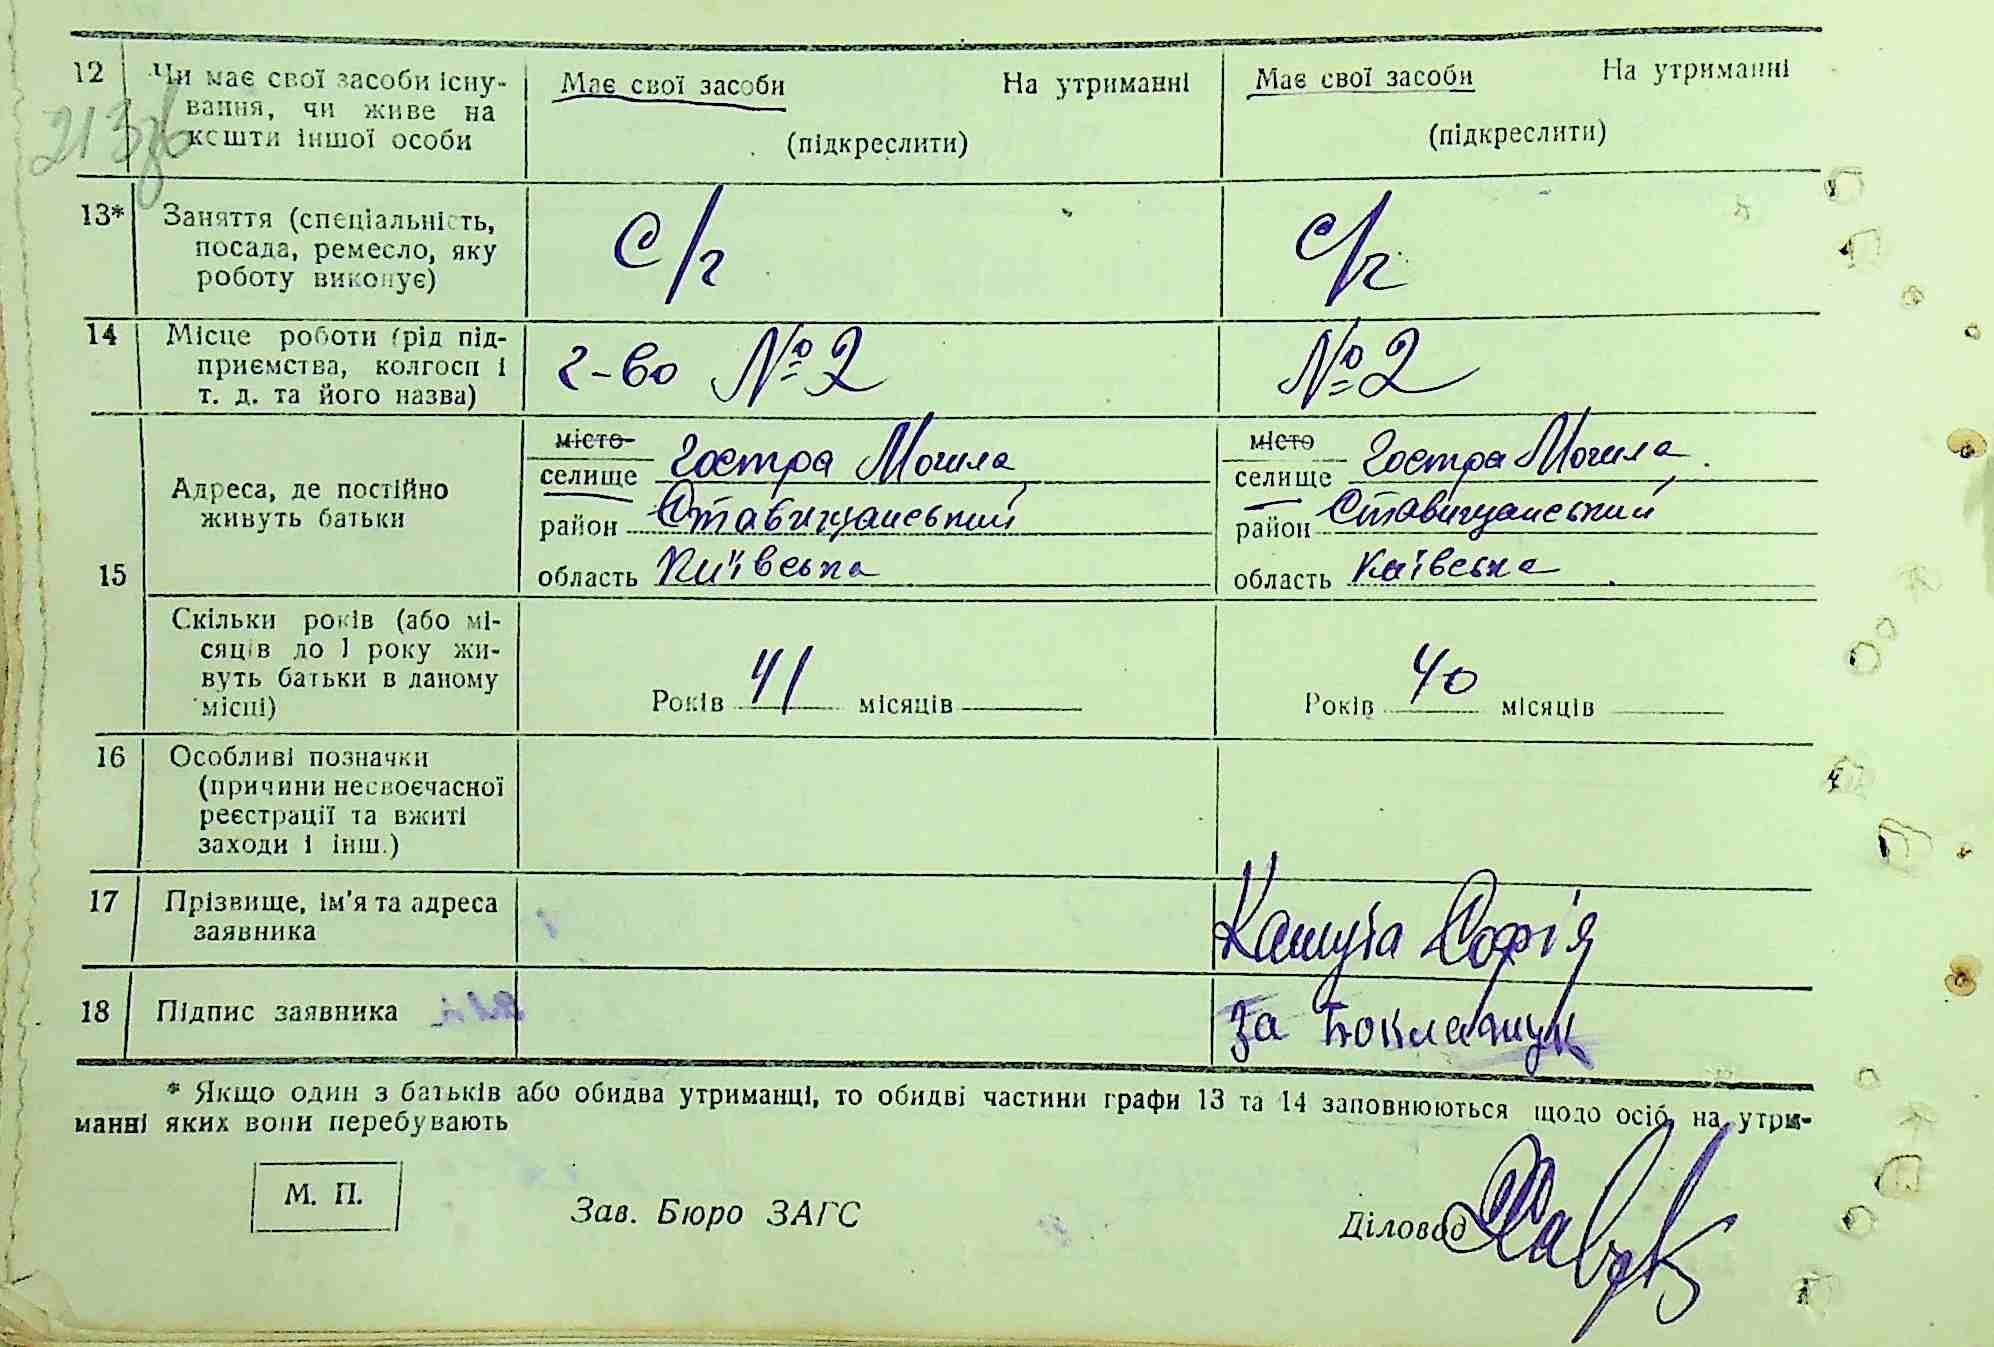 12 Чи має свої засоби існу-
вання, чи живе на
кошти іншої особи
Має свої засоби На утриманні
(підкреслити)
Має свої засоби На утриманні
(підкреслити)
213
13* Заняття (спеціальність,
посада, ремесло, яку
роботу виконує)
с/г
с/г
14 Місце роботи (рід під-
приємства, колгосп і
т. д. та його назва)
г-во №2
№2
15
Адреса, де постійно
живуть батьки
місто
селище Гостра Могила
район Ставищанський
область Київська
місто
селище Гостра Могила
район Ставищанський
область Київська
Скільки років (або мі-
сяців до 1 року жи-
вуть батьки в даному
місці)
Років 41 місяців
Років 40 місяців
16 Особливі позначки
(причини несвоєчасної
реєстрації та вжиті
заходи і інш.)
17 Прізвище, ім'я та адреса
заявника
Софія
18 Підпис заявника
за
* Якщо один з батьків або обидва утриманці, то обидві частини графи 13 та 14 заповнюються щодо осіб, на утри-
манні яких вони перебувають
М. П.
Зав. Бюро ЗАГС
Діловод